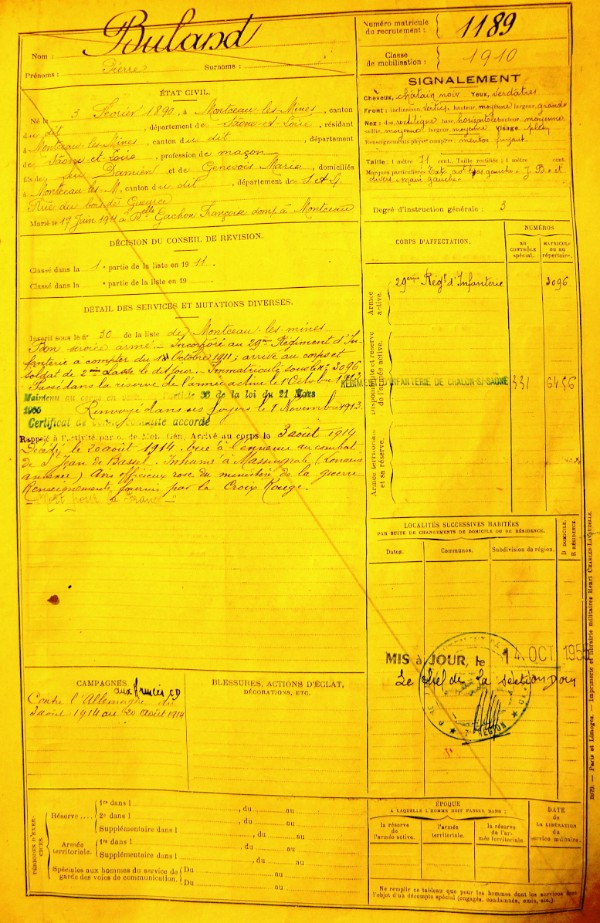 Nom : Buland
Prénoms : Pierre Surnoms :
Numéro matricule
du recrutement : 1189
Classe
de mobilisation : 1910
ÉTAT CIVIL.
Né le 3 février 1890, à Montceau-les-Mines, canton
du dit, département de Saône et Loire, résidant
à Montceau-les-Mines, canton du dit, département
de Saône et Loire, profession de maçon
fils de Damien et de Genevois Maria, domiciliés
à Montceau les M. canton du dit, département de S. et L.
Rue du bois du
Marié le 17 Juin 1911 à Delle Gachon Françoise dom. à Montceau
DÉCISION DU CONSEIL DE REVISION.
Classé dans la 1e partie de la liste en 1911.
Classé dans la partie de la liste en 19
DÉTAIL DES SERVICES ET MUTATIONS DIVERSES.
Inscrit sous le no 30 de la liste de Montceau les mines
Bon service armé. Incorporé au 29me Régiment d'In
fanterie à compter du Octobre 1911; arrivé au corps et
soldat de 2me classe le dit jour. Immatriculé sous le no 3096
Passé dans la réserve de l'armée active le 1 Octobre
Maintenu au corps en vertu de l'article 33 de la loi du 21 Mars
1905
Renvoyé dans ses foyers le 8 Novembre 1913.
Certificat de bonne conduite accordé
Rappelé à l'activité par o. de Mob. Gén. Arrivé au corps le 3 août 1914
Décédé le 20 août 1914, tué à l'ennemi au combat
de St Jean de Bassel. Inhumé à (Lorraine
annexée) Avis officieux
Renseignements fournis par la Croix Rouge.
Mort pour la France
SIGNALEMENT
Cheveux, châtain noir Yeux, verdâtres
Front : inclinaison, vertical hauteur, moyenne largeur, grande
Nez : dos rectiligne base horizontale hauteur moyenne
saillie, moyenne largeur, moyenne Visage
Renseignements physionomiques complémentaires menton fuyant
Taille : 1 mètre cent. Taille rectifiée : 1 mètre cent.
Marques particulières : Tat. av. bras gauche J. B. et
main gauche
Degré d'instruction générale : 3
CORPS D'AFFECTATION.
NUMÉROS
AU CONTRÔLE spécial.
MATRICULE OU AU répertoire.
Armée active.
29eme Régt d'Infanterie 3096
Disponibilité et réserve de l'armée active.
RÉGIMENT D'INFANTERIE DE CHALON-S/-SAONE 331
Armée territoriale et sa réserve.
LOCALITÉS SUCCESSIVES HABITÉES
PAR SUITE DE CHANGEMENTS DE DOMICILE OU DE RÉSIDENCE.
Dates. Communes. Subdivision du région. D. domicile. R. résidence.
MIS à JOUR, le 14 OCT 195
Le Chef de la section
CAMPAGNES.
aux armées
Contre l'Allemagne du
3 août 1914 au 20 août 1914
BLESSURES, ACTIONS D'ÉCLAT,
DÉCORATIONS, ETC.
PÉRIODES D'EXERCICES.
Réserve
1re dans l , du au
2e dans l , du au
Supplémentaire dans l , du au
Armée territoriale.
1re dans l , du au
Supplémentaire dans l , du au
Spéciales aux hommes du service de garde des voies de communication. Du au
Du au
ÉPOQUE
A LAQUELLE L'HOMME DOIT PASSER DANS :
la réserve de l'armée active. l'armée territoriale. la réserve de l'armée territoriale
DATE
de LA LIBÉRATION du service militaire.
Ne remplir ce tableau que pour les hommes dont les services sont
l'objet d'un décompte spécial (engagés, condamnés, omis, etc.)
Paris et Limoges. — Imprimerie et librairie militaires Henri CHARLES-LAVAUZELLE.